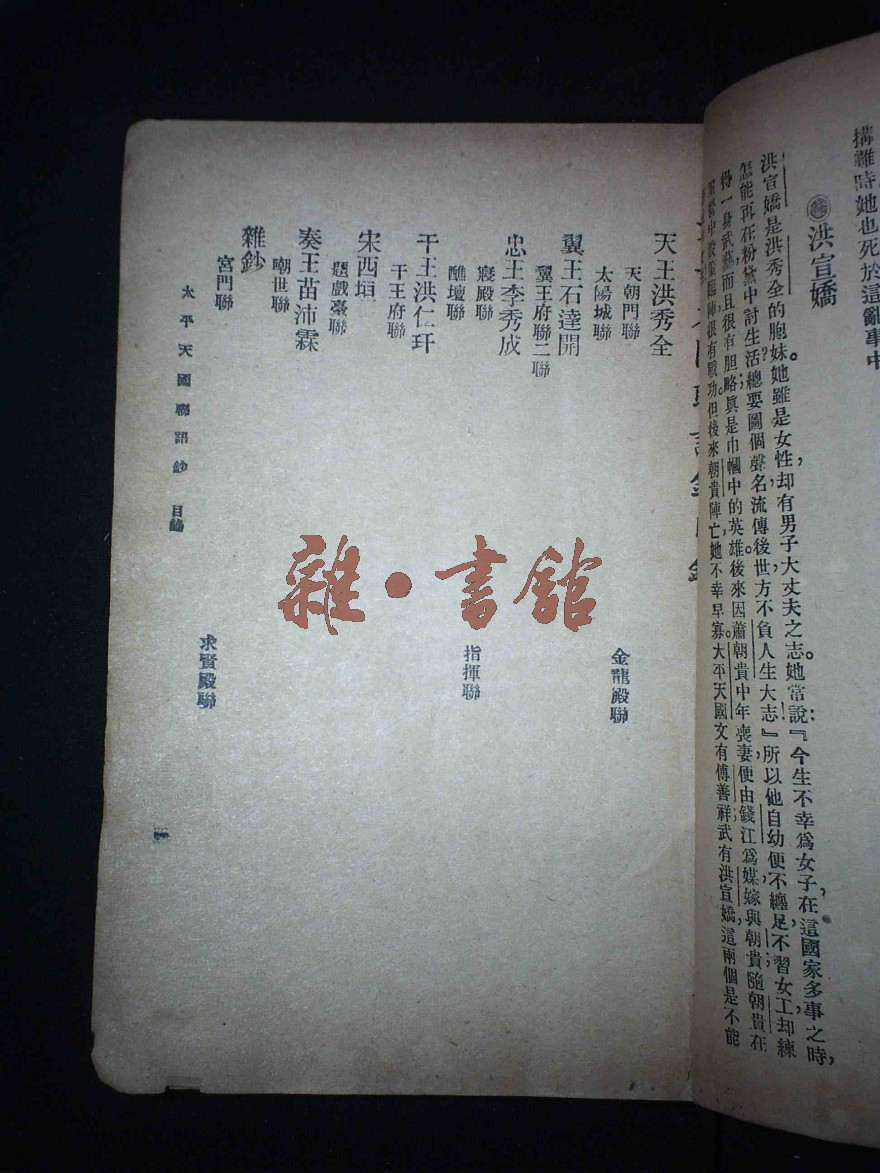 搆難時她也死於這亂事中
洪宣嬌
洪宣嬌是洪秀全的胞妹。她雖是女性，却有男子大丈夫之志。她常說：『今生不幸爲女子，在這國家多事之時，
怎能再在粉黛中討生活？總要圖個聲名流傳後世，方不負人生大志！』所以他自幼便不纏足，不習女工，却練
得一身武藝，而且很有胆略，眞是巾幗中的英雄。後來因蕭朝貴中年喪妻，便由錢江爲媒，嫁與朝貴；隨朝貴在
很有戰功。但後來朝貴陣亡，她不幸早寡。太平天國文有傅善祥，武有洪宣嬌，這兩個是不能
天王洪秀全
天朝門聯
金龍殿聯
太陽城聯
翼王石達開
翼王府聯二聯
忠王李秀成
寢殿聯
指揮聯
醮壇聯
干王洪仁玕
干王府聯
宋西垣
題戲臺聯
奏王苗沛霖
嘲世聯
雜鈔
宮門聯
求賢殿聯
太平天國聯語鈔 目錄
一
雜·書館